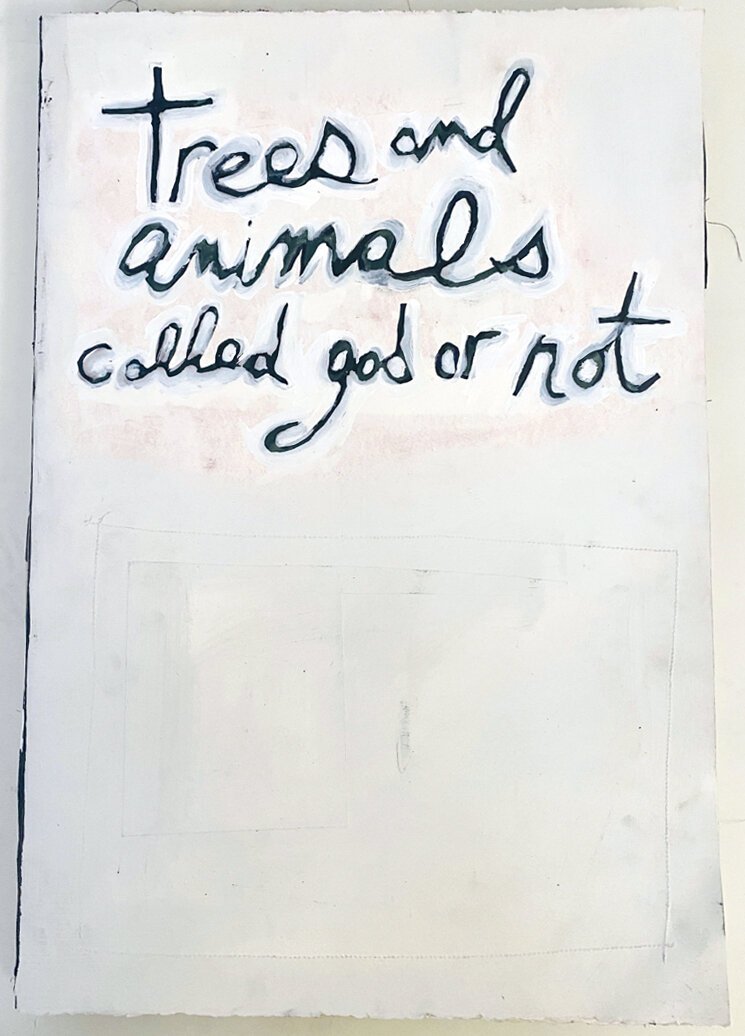 trees and
animals
called god or not